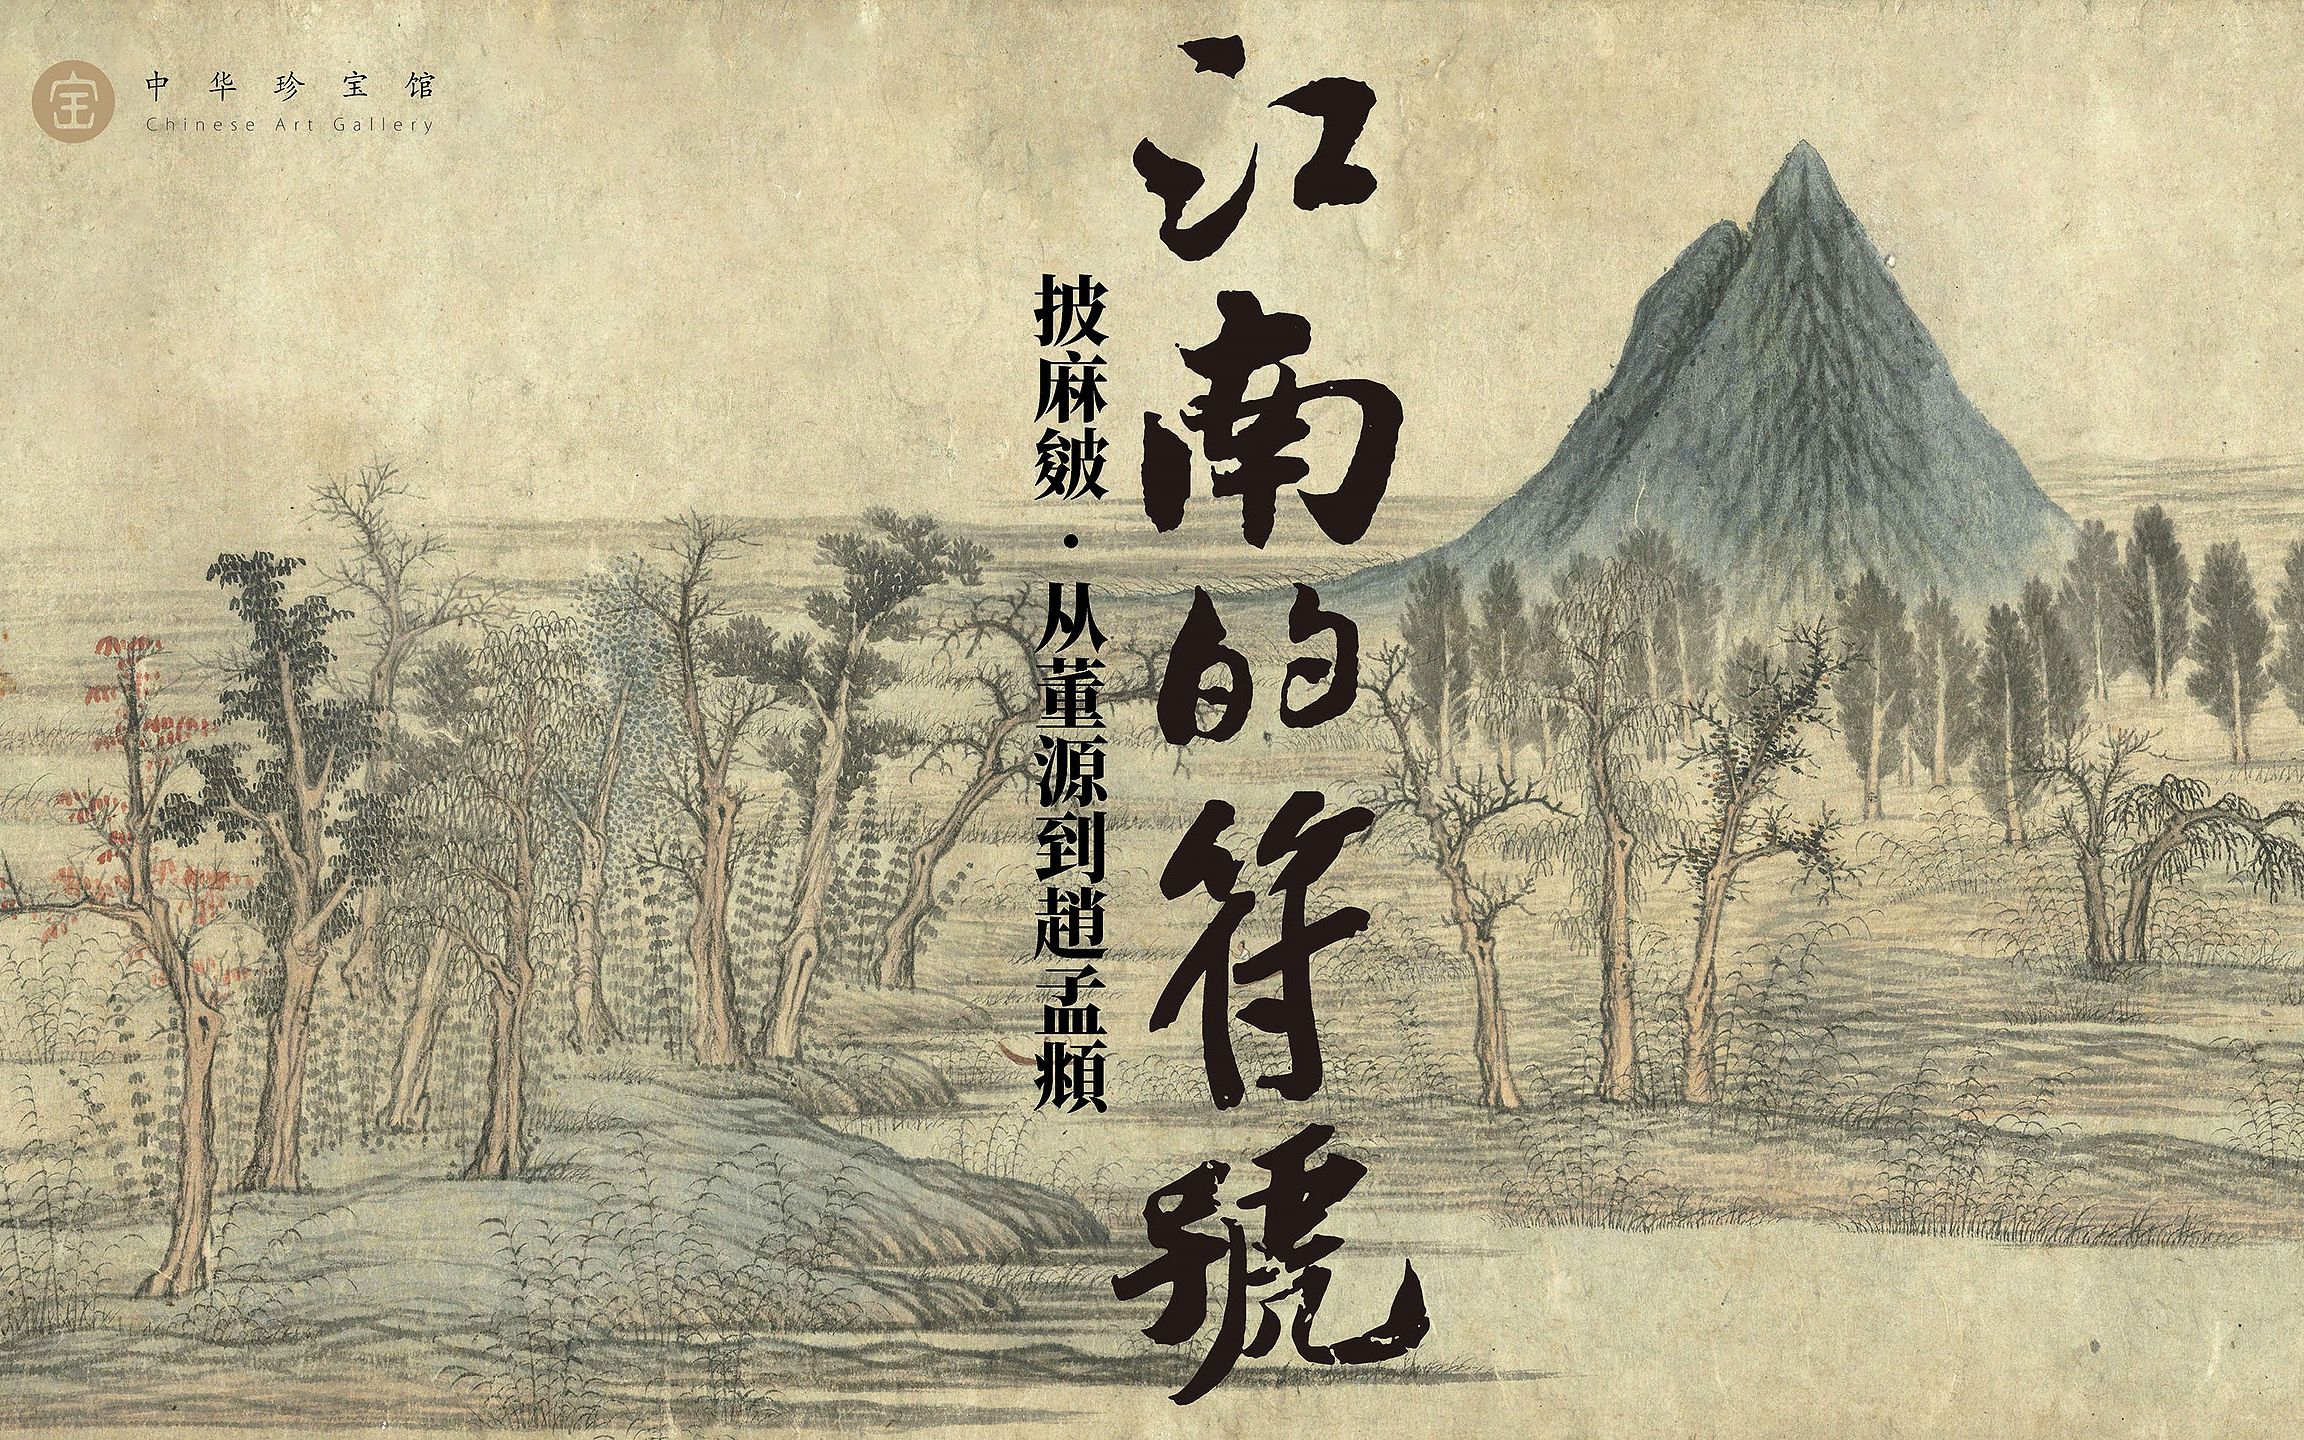 宝
中华珍宝馆
Chinese Art Gallery
江南的符號
披麻皴·从董源到趙孟頫